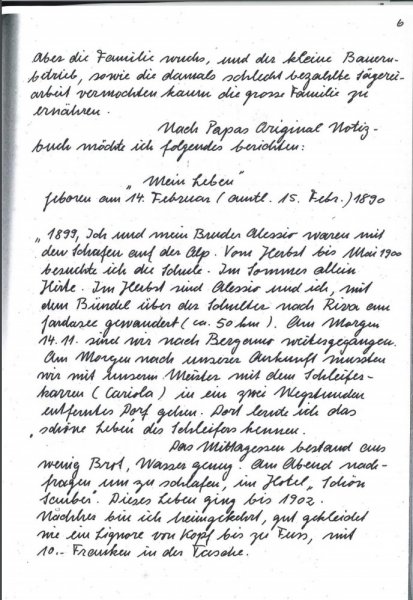 6
Aber die Familie wuchs, und der kleine Bauern-
betrieb, sowie die damals schlecht bezahlte Sägerei-
arbeit vermochten kaum die grosse Familie zu
ernähren.
Nach Papas Original Notiz-
buch möchte ich folgendes berichten:
"Mein Leben"
geboren am 14. Februar (amtl. 15. Febr.) 1890
"1899, Ich und mein Bruder Alessio waren mit
den Schafen auf der Alp. Vom Herbst bis Mai 1900
besuchte ich die Schule. Im Sommer allein
Hirte. Im Herbst sind Alessio und ich, mit
dem Bündel über der Schulter nach Riva am
Gardasee gewandert (ca. 50 km). Am Morgen
14.11. sind wir nach Bergamo weitergegangen.
Am Morgen nach unserer Ankunft mussten
wir mit unserm Meister mit dem Schleifer-
karren (Cariola) in ein zwei Wegstunden
entferntes Dorf gehen. Dort lernte ich das
"schöne Leben" des Schleifers kennen.
Das Mittagessen bestand aus
wenig Brot, Wasser genug. Am Abend nach-
fragen um zu schlafen, im Hotel "Schön
Schiber". Dieses Leben ging bis 1902.
Nachher bin ich heimgekehrt, gut gekleidet
wie ein Signore von Kopf bis zu Fuss, mit
10.- Franken in der Tasche.